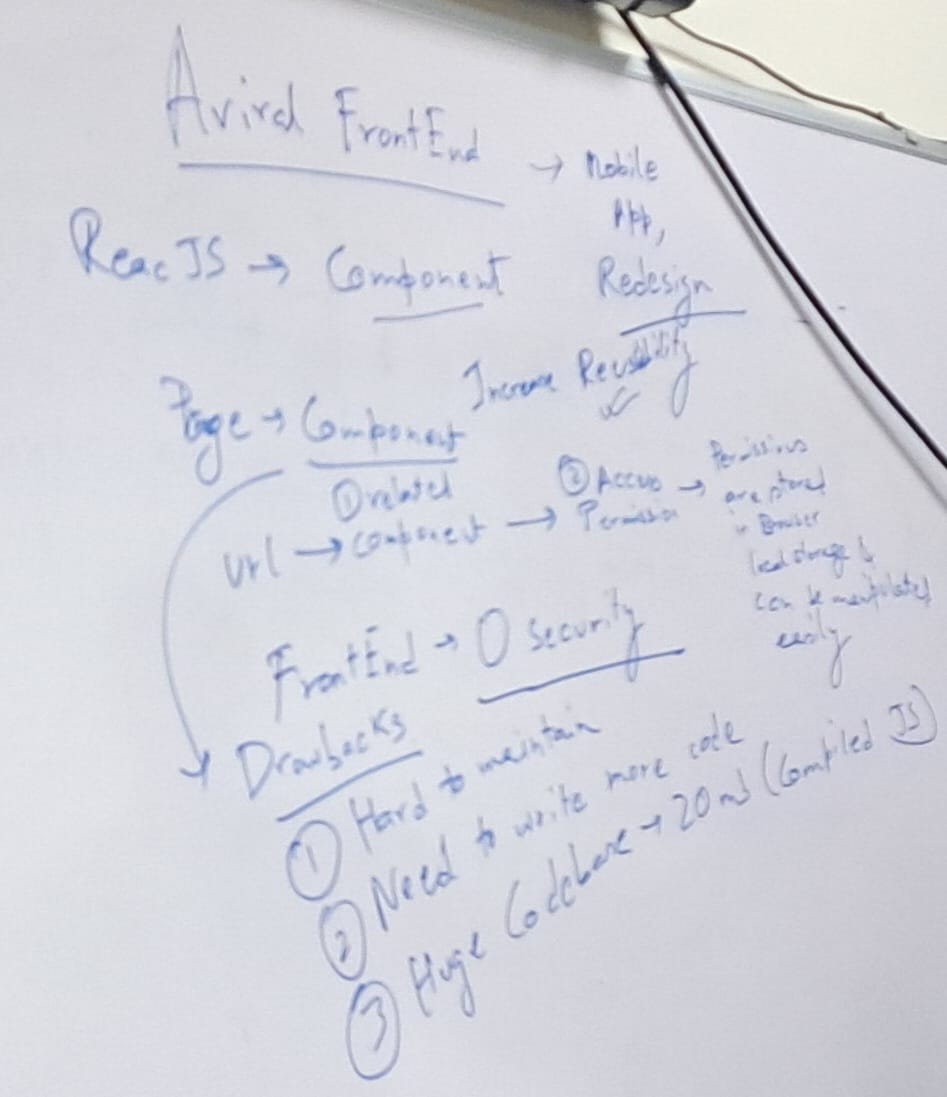 Aviral FrontEnd
→ Mobile
App,
Redesign
Reac JS → Component
Increase Reusability
Page → Component
① related
url → component → ② Access
Permission → Permissions
are stored
in Browser
local storage &
can be manipulated
easily
FrontEnd → 0 security
Drawbacks
① Hard to maintain
② Need to write more code
③ Huge Codebase → 20 mb (Compiled JS)